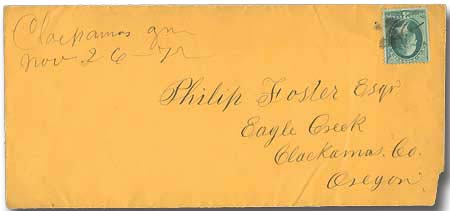 Clackamas Ogn
Nov 26-72
Philip Foster Esqr
Eagle Creek
Clackamas. Co.
Oregon